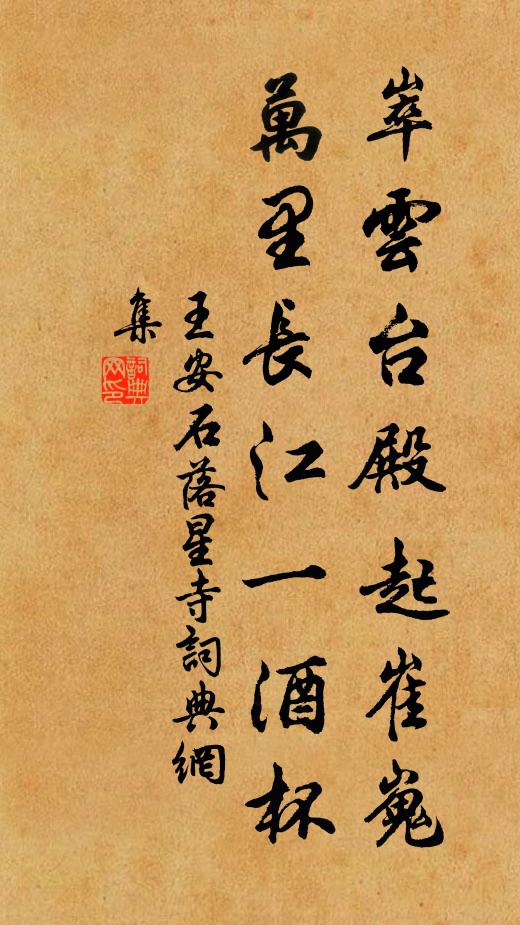 崒雲台殿起崔嵬
萬里長江一酒杯
王安石落星寺詞典網
集
詞典網印